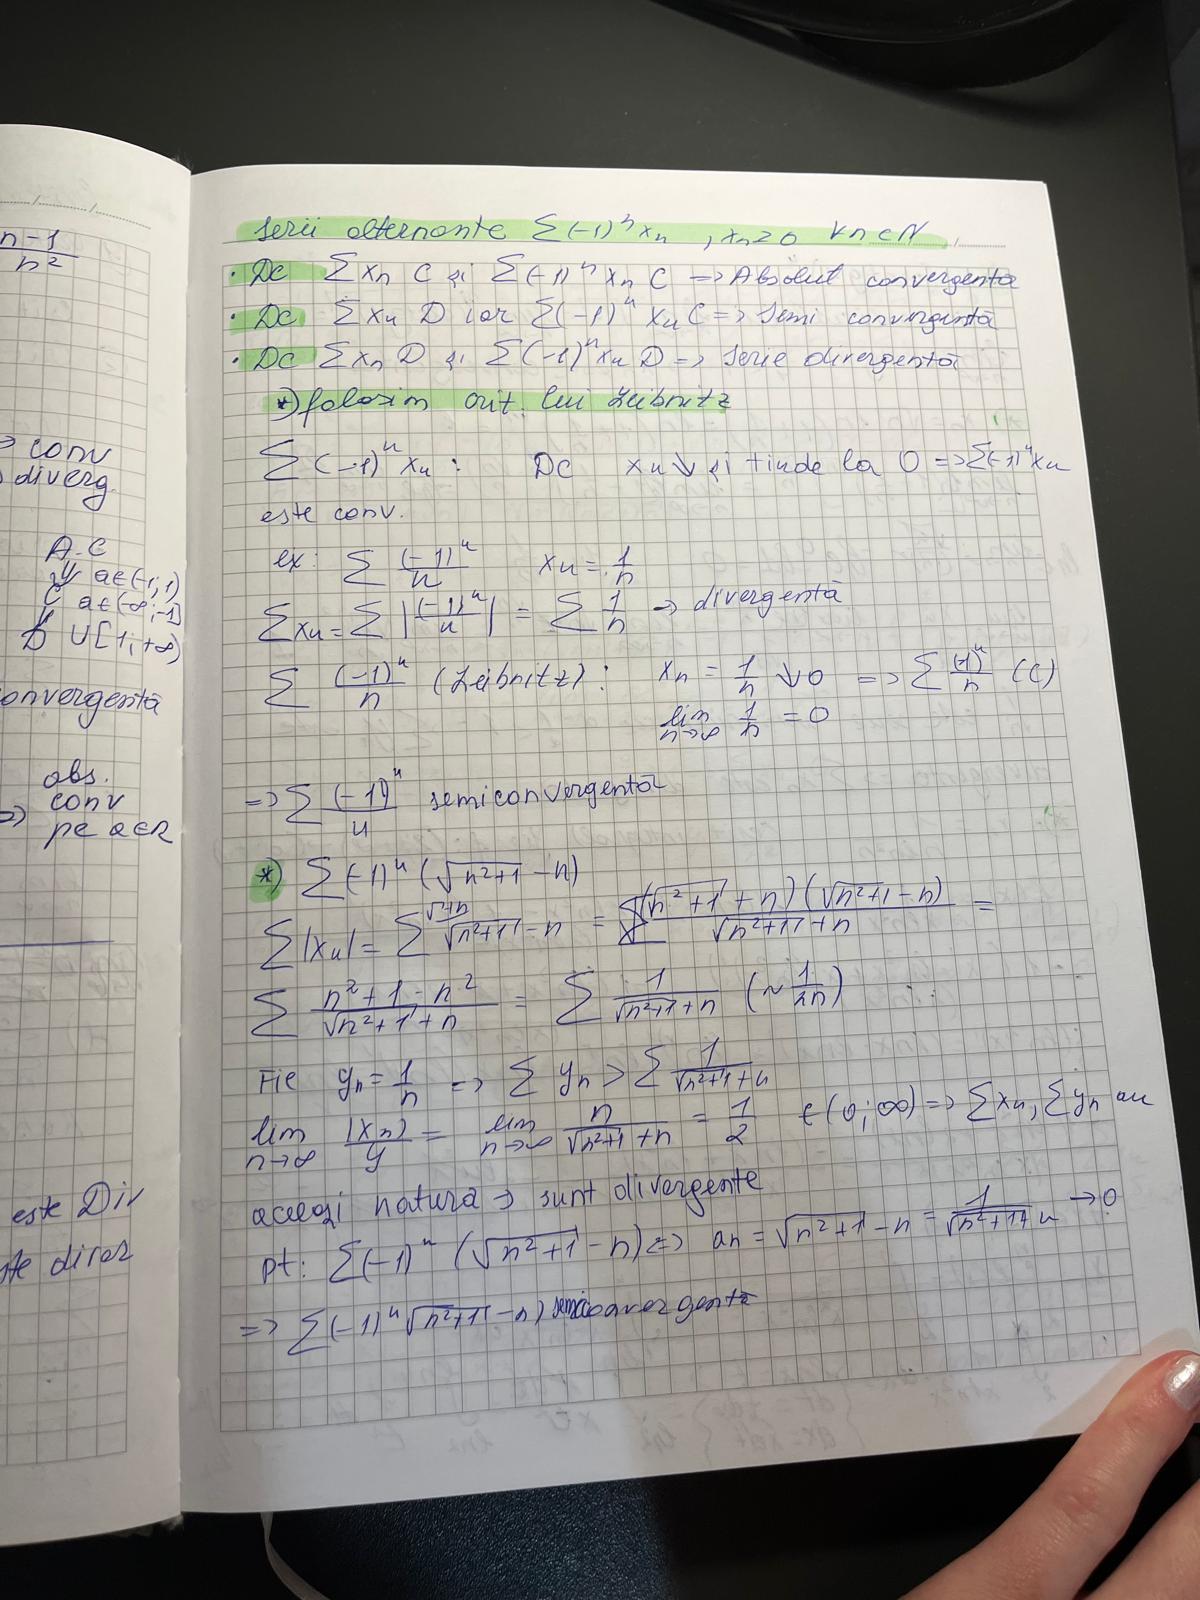 n-1
n²
=> conv
diverg.
A.C
a∈(-1;1)
C a∈(-∞;-1]
D ∪[1;+∞)
convergentă
abs.
conv
=> pe a∈R
este Div
este diver
Serii alternante ∑(-1)ⁿxₙ , xₙ≥0 ∀n∈N
• Dc ∑xₙ C și ∑(-1)ⁿxₙ C => Absolut convergentă
• Dc ∑xₙ D iar ∑(-1)ⁿxₙ C => Semi convergentă
• Dc ∑xₙ D și ∑(-1)ⁿxₙ D => serie divergentă
*) folosim crit. lui Leibnitz
∑(-1)ⁿxₙ : Dc xₙ↓ și tinde la 0 => ∑(-1)ⁿxₙ
este conv.
ex: ∑ (-1)ⁿ/n xₙ = 1/n
∑xₙ = ∑ |(-1)ⁿ/n| = ∑ 1/n → divergentă
∑ (-1)ⁿ/n (Leibnitz) : xₙ = 1/n ↓0 => ∑ (-1)ⁿ/n (C)
lim n→∞ 1/n = 0
=> ∑ (-1)ⁿ/n semiconvergentă
*) ∑(-1)ⁿ (√n²+1 - n)
∑|xₙ| = ∑ √n²+1 - n = ∑ (√n²+1 + n)(√n²+1 - n)/√n²+1 + n =
∑ n²+1-n²/√n²+1 + n = ∑ 1/√n²+1 + n (~ 1/2n)
Fie yₙ = 1/n => ∑ yₙ > ∑ 1/√n²+1 + n
lim n→∞ |xₙ|/y = lim n→∞ n/√n²+1 + n = 1/2 ∈(0;∞) => ∑xₙ, ∑yₙ au
aceeași natură → sunt divergente
pt: ∑(-1)ⁿ (√n²+1 - n) => aₙ = √n²+1 - n = 1/√n²+1 + n → 0
=> ∑(-1)ⁿ√n²+1 - n) semiconvergentă